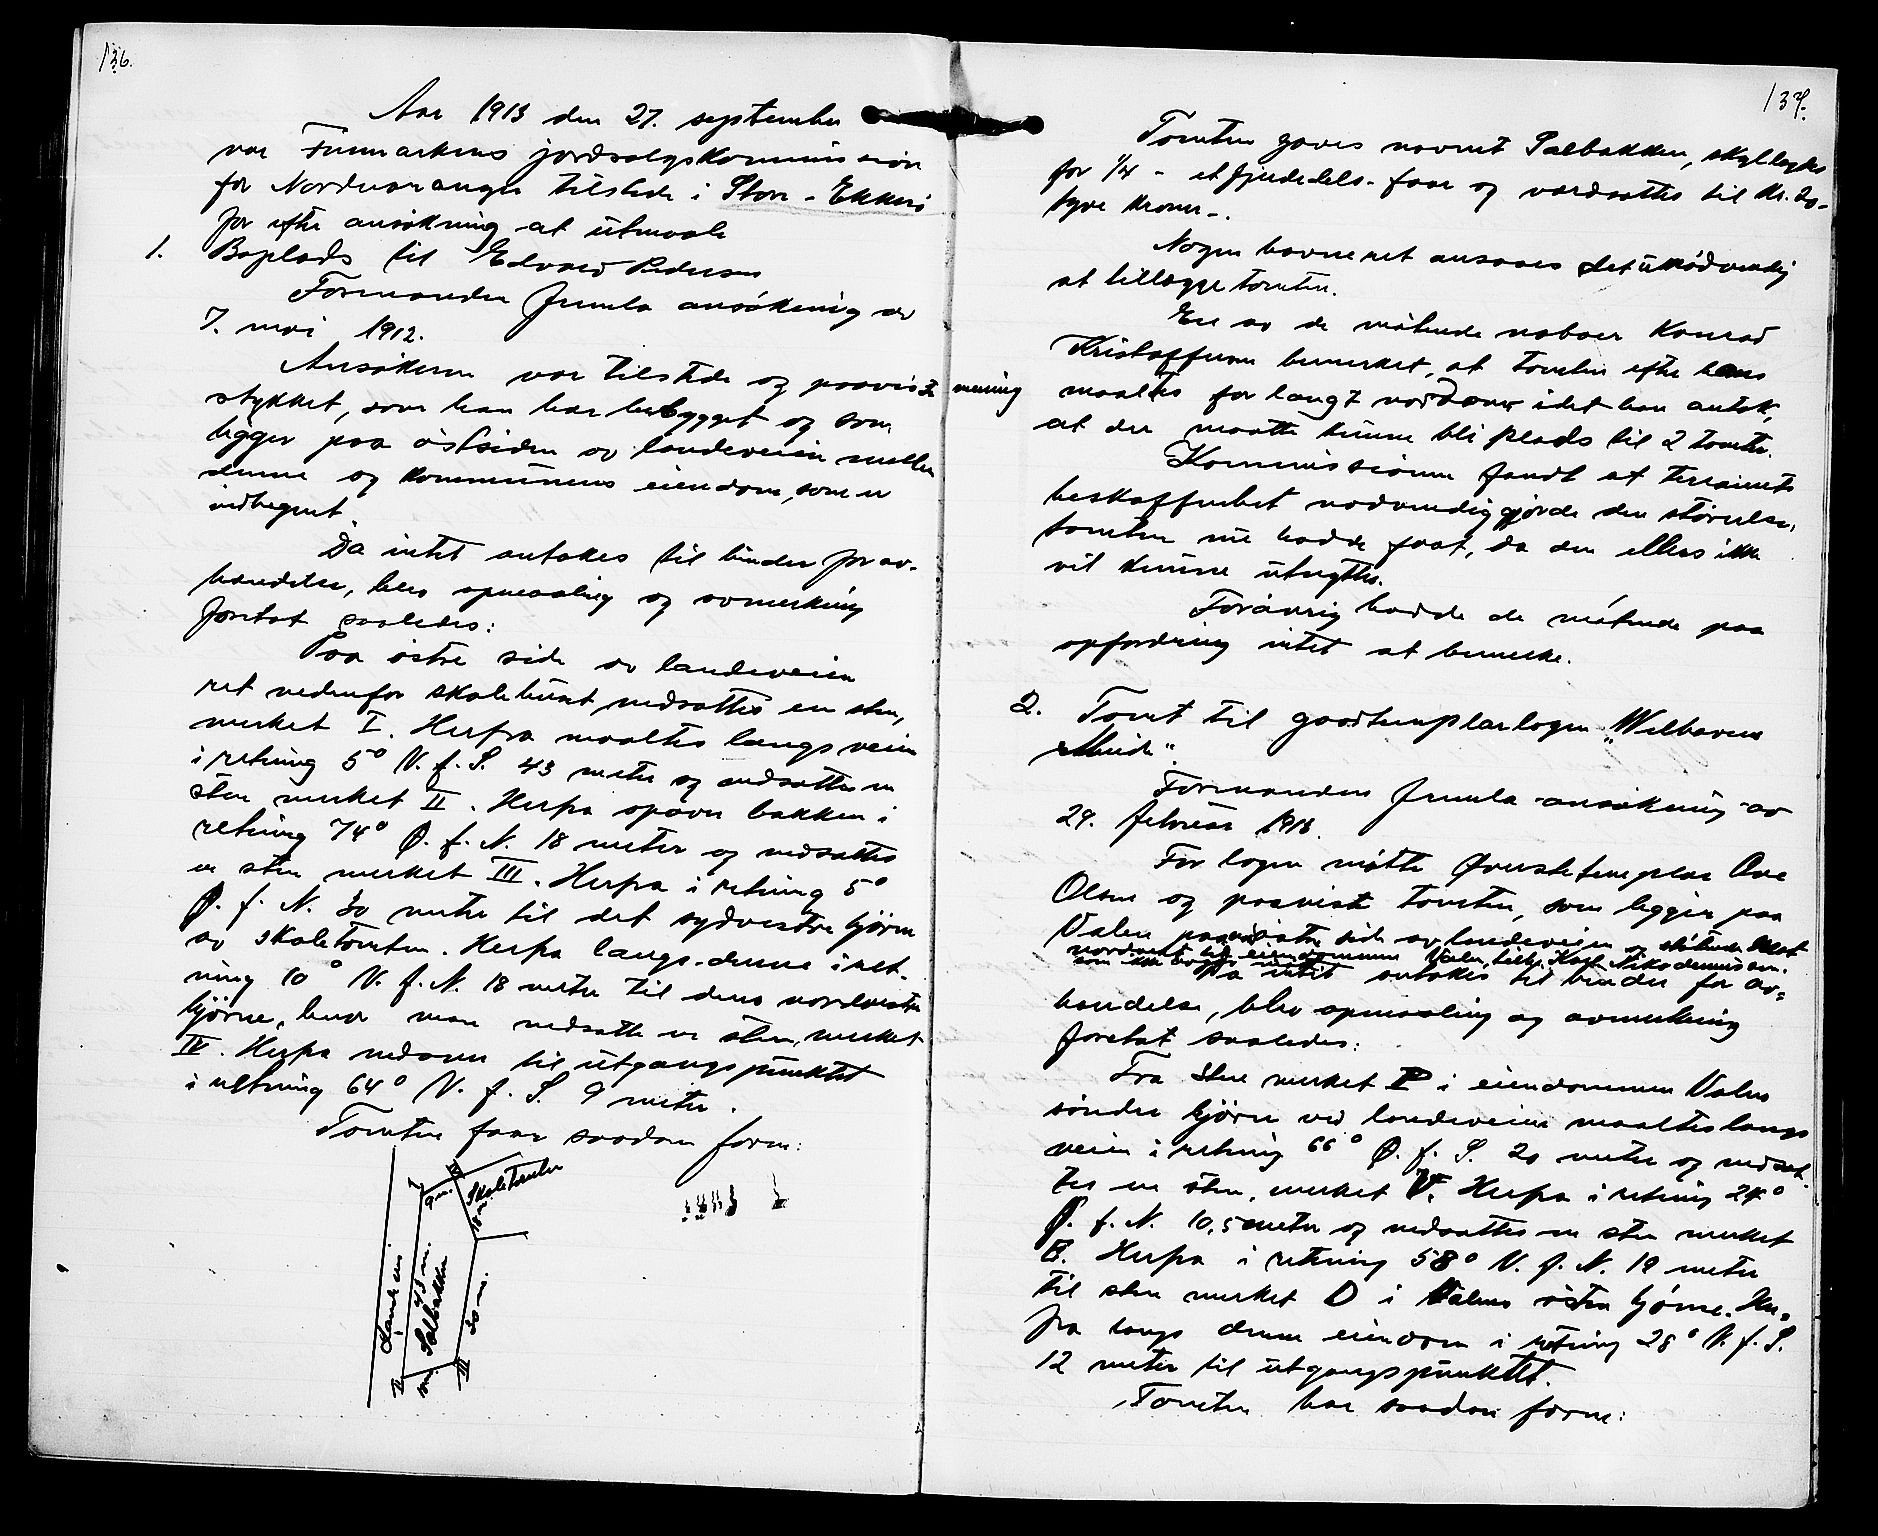 136.
Aar 1913 den 27. september
var Finmarkens jordsalgskommission
for Nordvaranger tilstede i Store-Ekkerö
for efter ansökning at utmaale
1. Boplads til Edvard Pedersen
Formanden fremla ansökning av
7. mai 1912.
Ansökeren var tilstede og paaviste
stykket, som han har bebygget og som
ligger paa östsiden av landeveien mellem
denne og kommunens eiendom, som er
indhegnet.
Da intet antokes til hinder for av-
hændelse, blev opmaaling og avmerkning
foretat saaledes:
Paa östre side av landeveien
ret nedenfor skolehuset nedsattes en sten,
merket I. Herfra maaltes langs veien
i retning 5° V. f. S. 43 meter og nedsattes en
sten merket II. Herfra opover bakken i
retning 74° Ø. f. N. 18 meter og nedsattes
en sten merket III. Herfra i retning 5°
Ø. f. N. 30 meter til det sydvestre hjörne
av skoletomten. Herfra langs denne i ret-
ning 10° V. f. N. 18 meter til dens nordvestre
hjörne, hvor man nedsatte en sten, merket
IV. Herfra nedover til utgangspunktet
i retning 64° V. f. S. 9 meter.
Tomten faar saadan form:
Landevei
I
9 m.
IV
Skoletomten
18 m.
43 m.
Solbakken
30 m.
II
18 m.
III
137.
Tomten gaves navnet Solbakken, skyldlagdes
for 1/4 - et fjerdedels- øre og værdsattes til kr. 20-
tyve kroner-.
Nogen havneret ansaaes det unødvendig
at tillægge tomten.
En av de møtende naboer Konrad
Kristoffersen bemerket, at tomten efter hans mening
maaltes for langt nordover idet han antok,
at der maatte kunne bli plads til 2 tomter.
Kommissionen fandt at terrainets
beskaffenhet nødvendiggjorde den størrelse,
tomten nu hadde faat, da den ellers ikke
vil kunne utnyttes.
Forøvrig hadde de møtende paa
opfordring intet at bemerke.
2. Tomt til goodtemplarlogen "Velbaaren
Minde".
Formanden fremla ansökning av
29. februar 1913.
For logen møtte Øverstetemplar Ove
Olsen og paaviste tomten, som ligger paa
Valen paa østre side av landeveien og støtende
nordvest til eiendommen Valen, tilh. Karl Nikodemussen.
Da intet antokes til hinder for av-
hændelse, blev opmaaling og avmerkning
foretat saaledes:
Fra sten merket i eiendommen Valens
søndre hjørne ved landeveien maaltes langs
veien i retning 66° Ø. f. S. 20 meter og nedsat-
tes en sten, merket V. Herfra i retning 24°
Ø. f. N. 10,5 meter og nedsattes en sten merket
B. Herfra i retning 58° V. f. N. 19 meter
til sten merket D i Valens østre hjørne. Her-
fra langs denne eiendom i retning 28° V. f. S.
12 meter til utgangspunktet.
Tomten har saadan form: